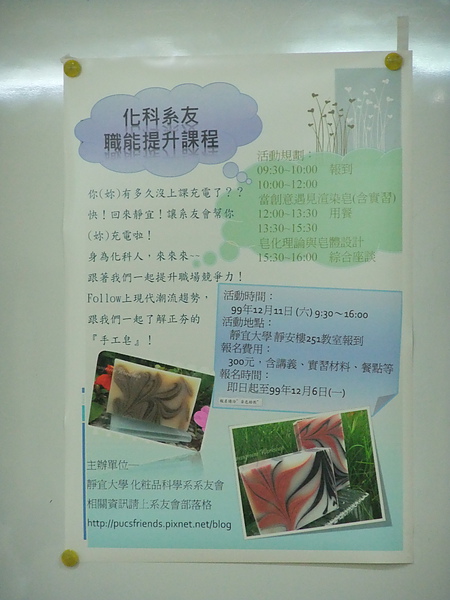 化科系友
職能提升課程
活動規劃：
09:30~10:00 報到
10:00~12:00
當創意遇見渲染皂(含實習)
12:00~13:30 用餐
13:30~15:30
皂化理論與皂體設計
15:30~16:00 綜合座談
你(妳)有多久沒上課充電了??
快！回來靜宜！讓系友會幫你
(妳)充電啦！
身為化科人，來來來~~
跟著我們一起提升職場競爭力！
Follow上現代潮流趨勢，
跟我們一起了解正夯的
『手工皂』！
活動時間：
99年12月11日 (六) 9:30~16:00
活動地點：
靜宜大學 靜安樓251教室報到
報名費用：
300元，含講義、實習材料、餐點等
報名時間：
即日起至99年12月6日(一)
主辦單位—
靜宜大學 化粧品科學系系友會
相關資訊請上系友會部落格
http://pucsfriends.pixnet.net/blog